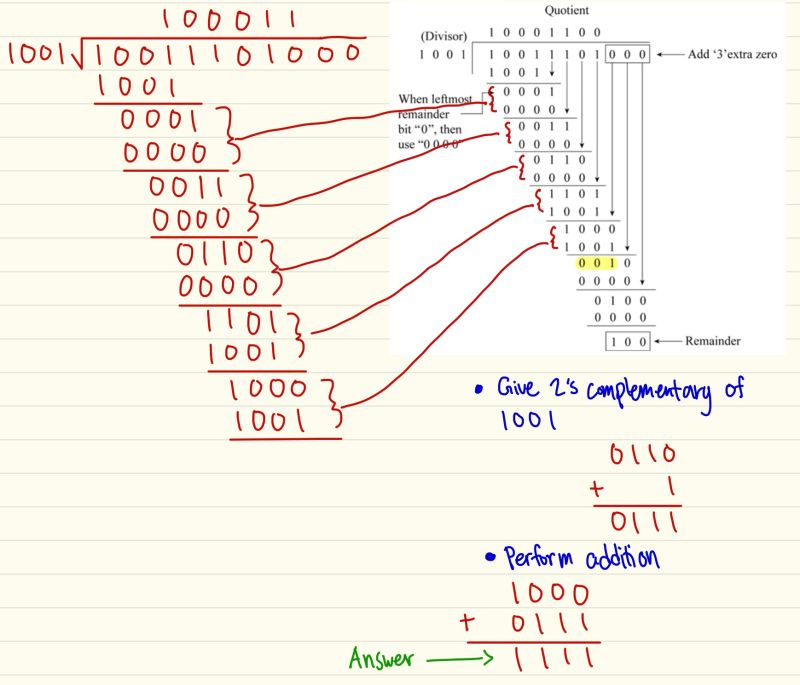 100011
1001 √ 10011101000
1001
0001
0000
0011
0000
0110
0000
1101
1001
1000
1001
Quotient
1 0 0 0 1 1 0 0
(Divisor)
1 0 0 1
1 0 0 1 1 1 0 1 0 0 0
Add ‘3’extra zero
1 0 0 1
0 0 0 1
When leftmost
remainder
bit “0”, then
use “0 0 0 0”
0 0 0 0
0 0 1 1
0 0 0 0
0 1 1 0
0 0 0 0
1 1 0 1
1 0 0 1
1 0 0 0
1 0 0 1
0 0 1 0
0 0 0 0
0 1 0 0
0 0 0 0
1 0 0
Remainder
• Give 2's complementary of
1001
0110
+ 1
0111
• Perform addition
1000
+ 0111
Answer → 1111